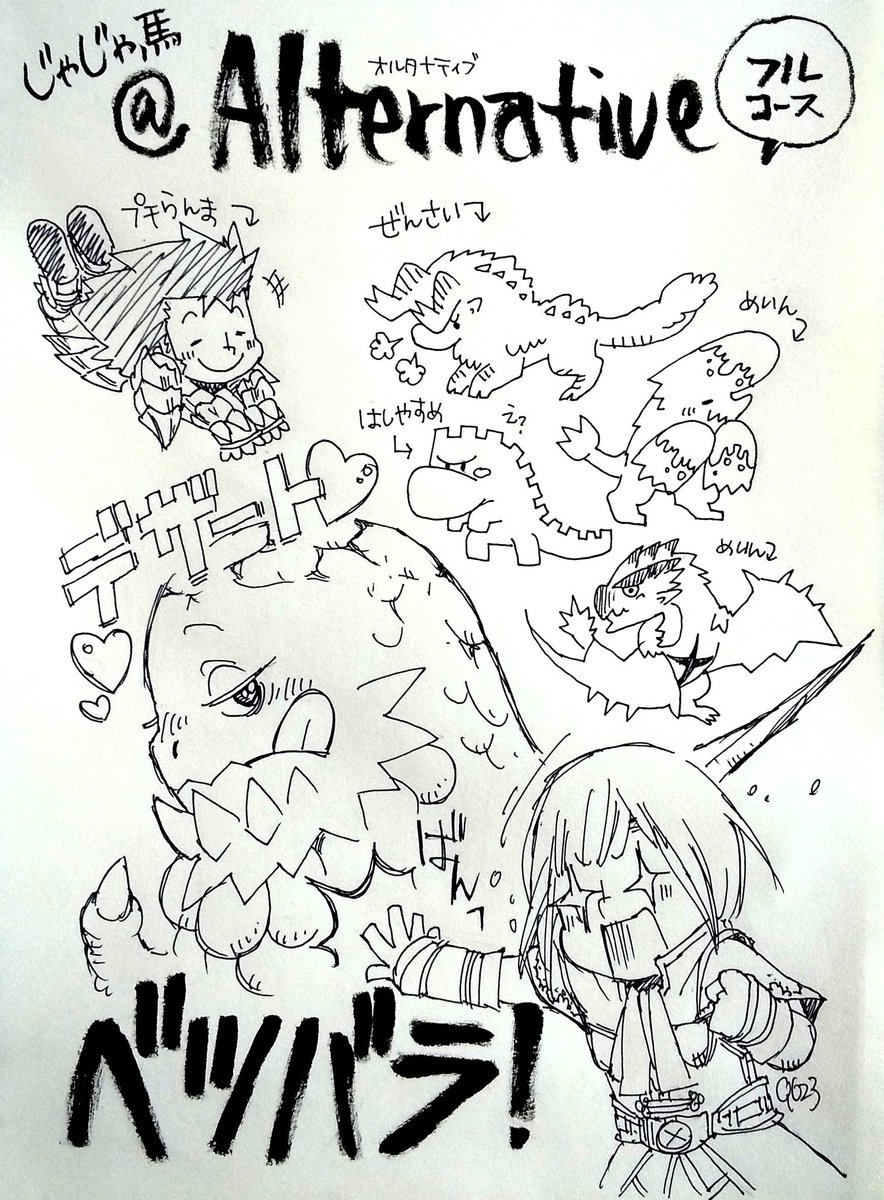 じゃじゃ馬
@Alternative
オルタナティブ
フル
コース
プキらんま
ぜんさい
めいん
はしやすめ
え?
デザート
めいん
ばんっ
ベツバラ!